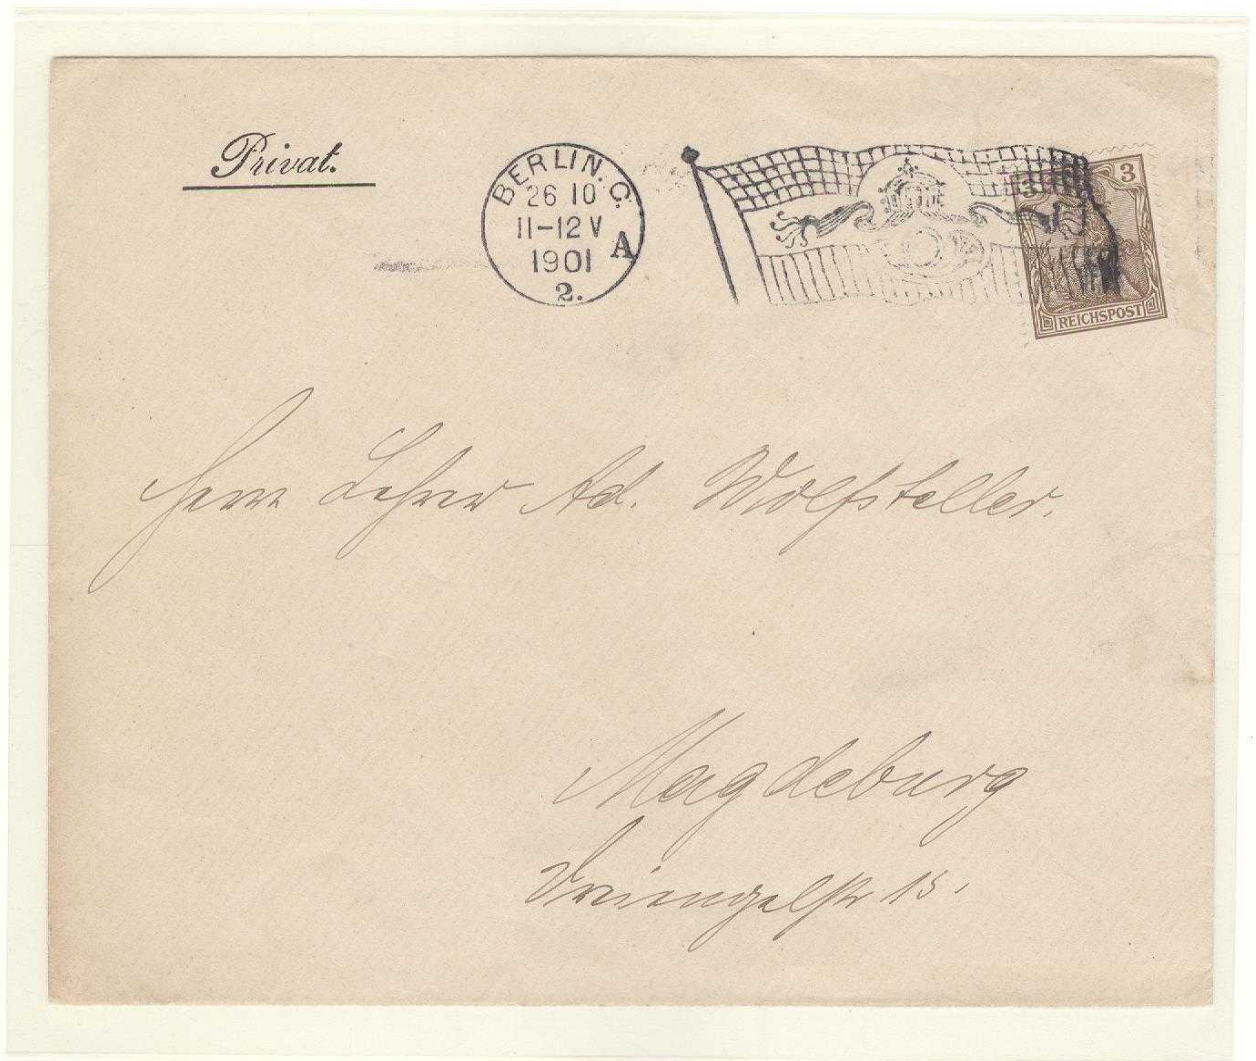 Privat.
BERLIN. C.
26 10
11-12 V
1901
A
2.
3 3
REICHSPOST
Herrn Lehrer Ad. Wolfsteller.
Magdeburg
15.